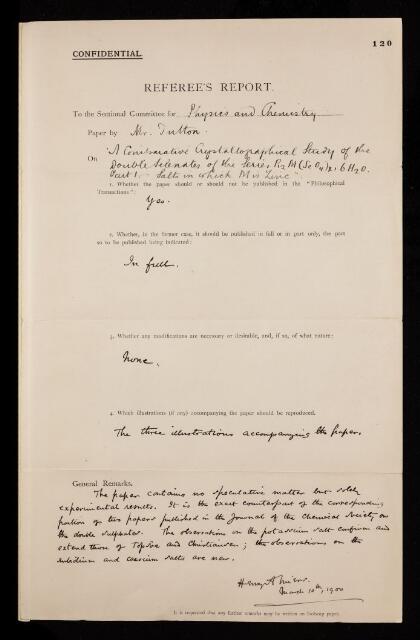 120
CONFIDENTIAL.
REFEREE'S REPORT.
To the Sectional Committee for Physics and Chemistry
Paper by Mr. Tutton.
On "A Comparative Crystallographical Study of the
Double Selenates of the Series R2 M (SeO4)2. 6 H2O.
Part 1. — Salts in which M is Zinc".
1. Whether the paper should or should not be published in the "Philosophical
Transactions":
Yes.
2. Whether, in the former case, it should be published in full or in part only, the part
so to be published being indicated:
In full.
3. Whether any modifications are necessary or desirable, and, if so, of what nature:
None.
4. Which illustrations (if any) accompanying the paper should be reproduced.
The three illustrations accompanying the paper.
General Remarks.
The paper contains no speculative matter but solely
experimental results. It is the exact counterpart of the corresponding
portion of two papers published in the Journal of the Chemical Society on
the double sulphates. The observations on the potassium salt confirm and
extend those of Topsöe and Christiansen; the observations on the
rubidium and caesium salts are new.
Henry A Miers.
March 10th, 1900
It is requested that any further remarks may be written on foolscap paper.